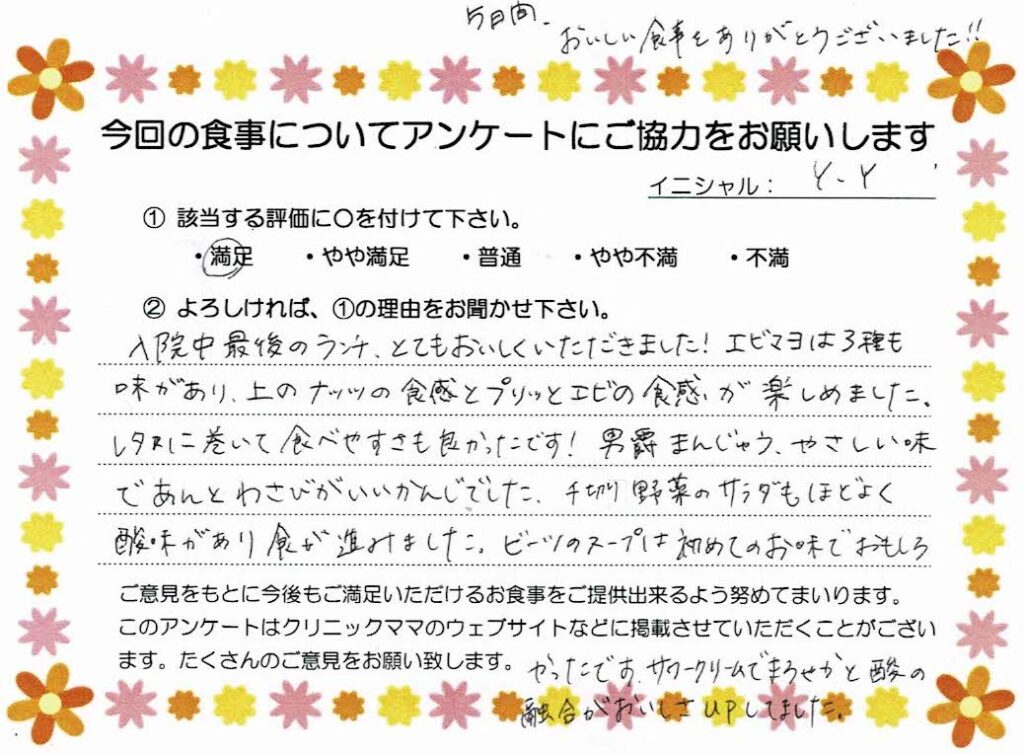 5日間、
おいしい食事をありがとうございました!!
今回の食事についてアンケートにご協力をお願いします
イニシャル： Y-Y
① 該当する評価に〇を付けて下さい。
・満足 ・やや満足 ・普通 ・やや不満 ・不満
② よろしければ、①の理由をお聞かせ下さい。
入院中最後のランチ、とてもおいしくいただきました! エビマヨは3種も
味があり、上のナッツの食感とプリッとエビの食感が楽しめました。
レタスに巻いて食べやすさも良かったです! 男爵まんじゅう、やさしい味
であんとわさびがいいかんじでした、千切り野菜のサラダもほどよく
酸味があり食が進みました。ビーツのスープは初めてのお味でおもしろ
ご意見をもとに今後もご満足いただけるお食事をご提供出来るよう努めてまいります。
このアンケートはクリニックママのウェブサイトなどに掲載させていただくことがござい
ます。たくさんのご意見をお願い致します。
かったです。サワークリームでまろやかと酸の
融合がおいしさupしてました。